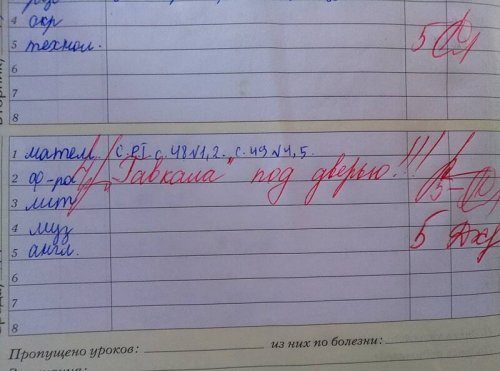 4 окр
5 технол. 5
6
7
8
1 матем. с. РТ с. 48 №1,2. с. 49 №4,5.
2 ф-ра „Гавкала" под дверью!!!
3 лит 5-
4 муз
5 англ. 5
6
7
8
Пропущено уроков: из них по болезни: